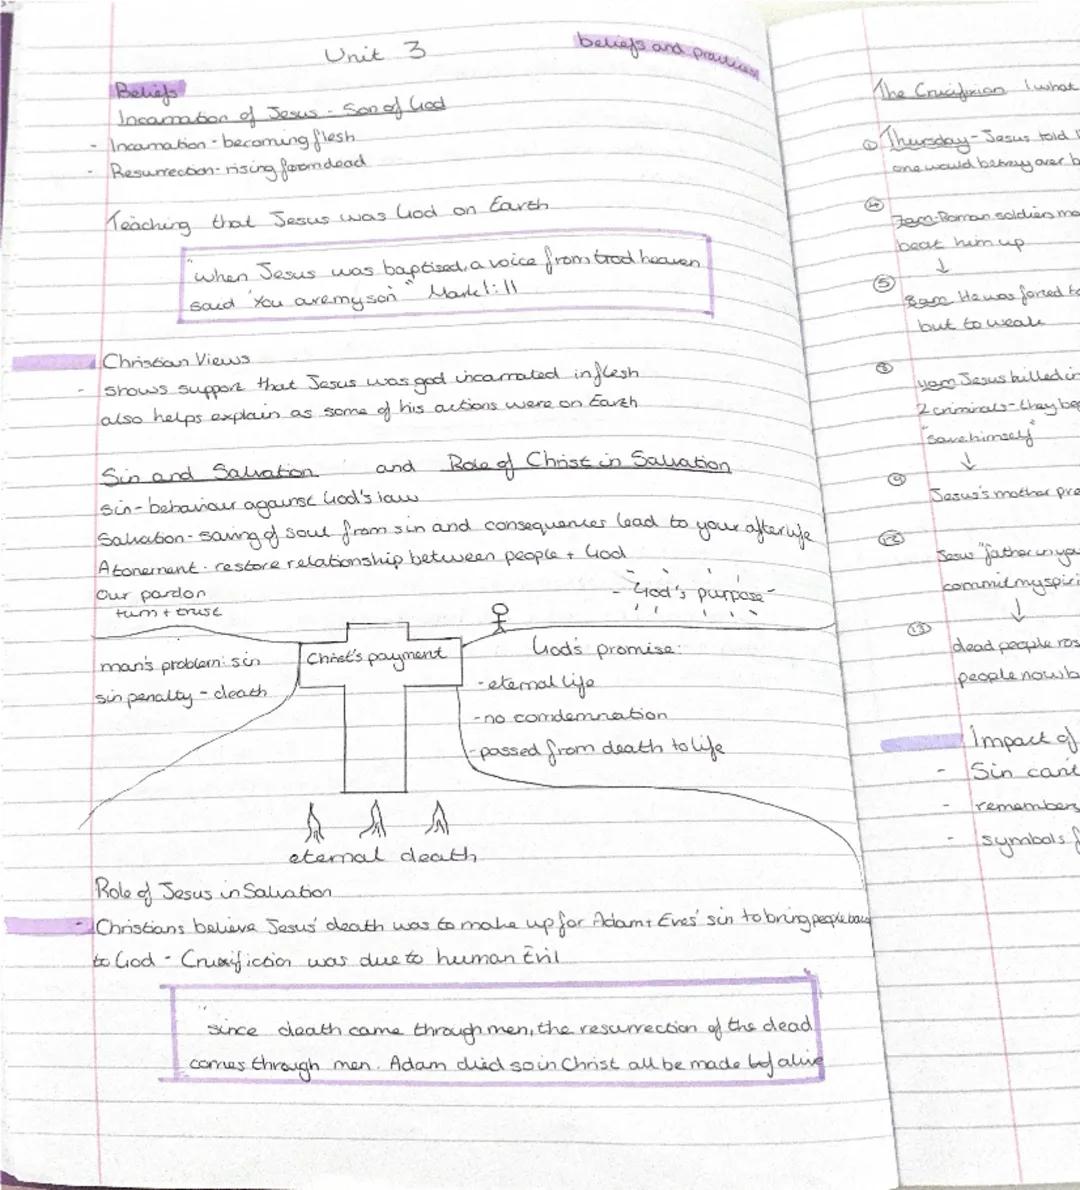 Unit 3
beliefs and practices
Beliefs
Incarnation of Jesus - Son of God
- Incarnation - becoming flesh
- Resurrection - rising from dead
Teaching that Jesus was God on Earth
"when Jesus was baptised, a voice from God heaven
said 'You are my son" Mark 1:11
Christian Views
- shows support that Jesus was god incarnated in flesh
also helps explain as some of his actions were on Earth
Sin and Salvation and Role of Christ in Salvation
sin - behaviour against God's law
Salvation - saving of soul from sin and consequences lead to your afterlife
Atonement - restore relationship between people + God
Our pardon
turn + trust
God's purpose
man's problem: sin
sin penalty - death
Christ's payment
God's promise:
- eternal life
- no condemnation
- passed from death to life
eternal death
Role of Jesus in Salvation
- Christians believe Jesus' death was to make up for Adam + Eves' sin to bring people back
to God - Crucifiction was due to human Evil
"since death came through men, the resurrection of the dead
comes through men. Adam died so in Christ all be made alive
The Crucifixion
what
① Thursday - Jesus told
one would betray over
④ 7am - Roman soldiers
beat him up
↓
⑤ 8am He was forced
but to weak
⑧ Jesus killed
2 criminals - they
"save himself"
↓
⑨ Jesus's mother
⑫ Jesus "father in
commit my
↓
⑬ dead people
people now
Impact of
- Sin
- remembers
- symbols